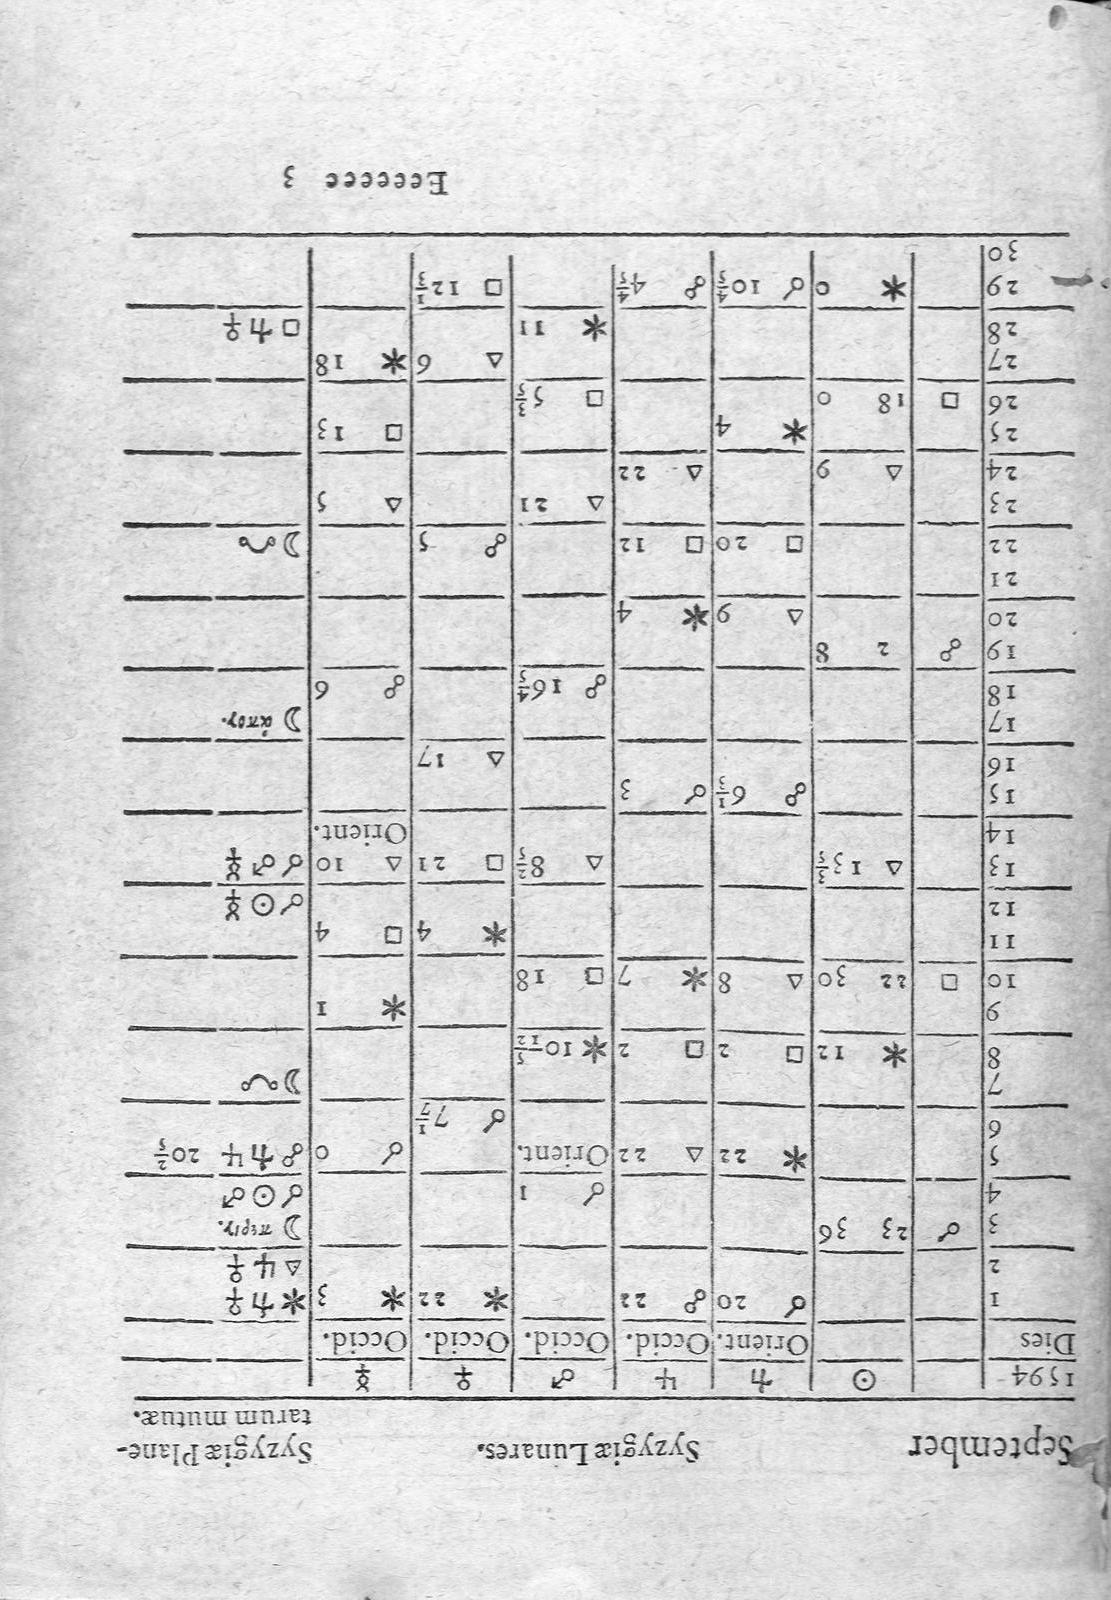 September Syzygiæ Lunares. Syzygiæ Plane-
tarum mutuæ.
1594 ☉ ♄ ♃ ♂ ♀ ☿
Dies Orient. Occid. Occid. Occid. Occid.
1 ☌ 20 ☍ 22 ⚹ 22 ⚹ 3 ⚹ ♄ ♀
2 △ ♃ ♀
3 ☌ 23 36 ☽ περίγ.
4 ☌ 1 ☌ ☉ ♂
5 ⚹ 22 △ 22 Orient. ☌ 0 ☍ ♄ ♃ 20 2/5
6 ☌ 7 1/7
7 ☽ ☊
8 ⚹ 12 □ 2 □ 2 ⚹ 10 5/12
9 ⚹ 1
10 □ 22 30 △ 8 ⚹ 7 □ 18
11 ⚹ 4 □ 4
12 ☌ ☉ ☿
13 △ 13 3/5 △ 8 2/5 □ 21 △ 10 ☌ ♂ ☿
14 Orient.
15 ☍ 6 1/3 ☌ 3
16 △ 17
17 ☽ ἀπογ.
18 ☍ 16 4/5 ☍ 6
19 ☍ 2 8
20 △ 9 ⚹ 4
21
22 □ 20 □ 12 ☍ 5 ☽ ☋
23 △ 21 △ 5
24 △ 9 △ 22
25 ⚹ 4 □ 13
26 □ 18 0 □ 5 3/5
27 △ 6 ⚹ 18
28 ⚹ 11 □ ♄ ♀
29 ⚹ 0 ☌ 10 4/5 ☍ 4 4/5 □ 12 1/3
30
Eeeeeee 3